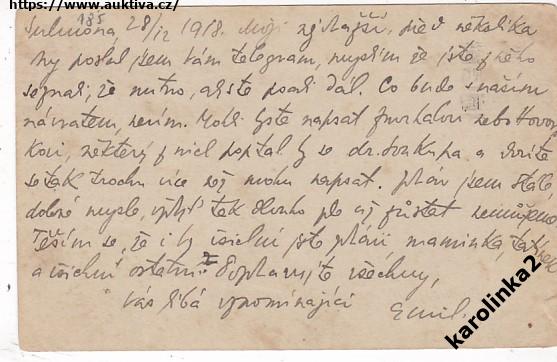 https://www.auktiva.cz/
185
Sulmona, 28/12 1918. Moji nejdražší, před několika
dny poslal jsem Vám telegram, myslím že jste z něho
seznali, že nutno, abyste psali dál. Co bude s naším
návratem, nevím. Mohli byste napsat
, některý z nich poptal by se dr. a
se tak trochu více než mohu napsat. zdráv jsem stále
dobré mysle, tak dlouho zde již zůstat nemůžeme
Těším se, že i Vy všichni jste zdrávi maminka, tatínek
a všichni ostatní. Pozdravujte všechny,
Vás líbá vzpomínající Emil.
karolinka2